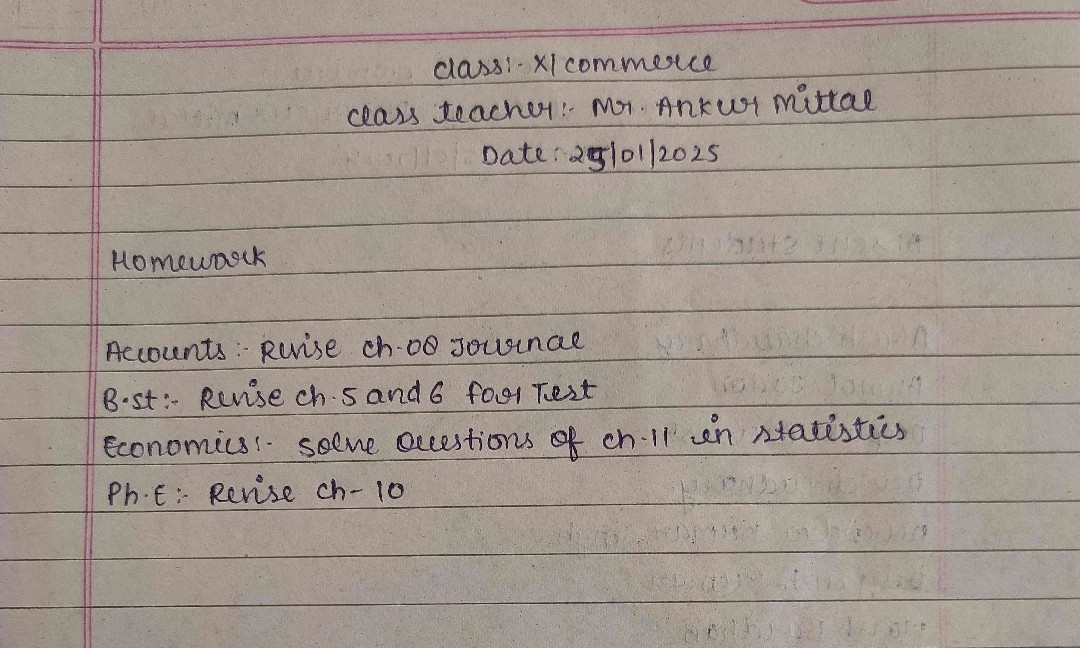 class:- XI commerce
class teacher:- Mr. Ankur Mittal
Date:25/01/2025
Homework
Accounts:- Revise ch.08 Journal
B.st:- Revise ch.5 and 6 for Test
Economics:- solve Questions of ch.11 in statistics
Ph.E:- Revise ch-10